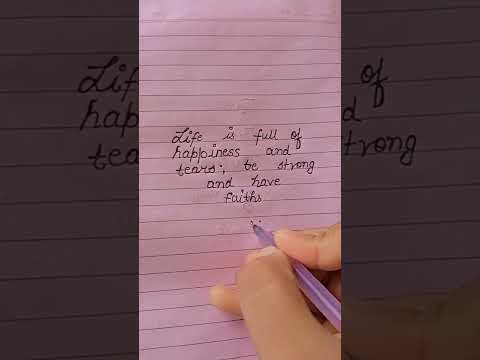 Life is full of
happiness and
tears; be strong
and have
faiths